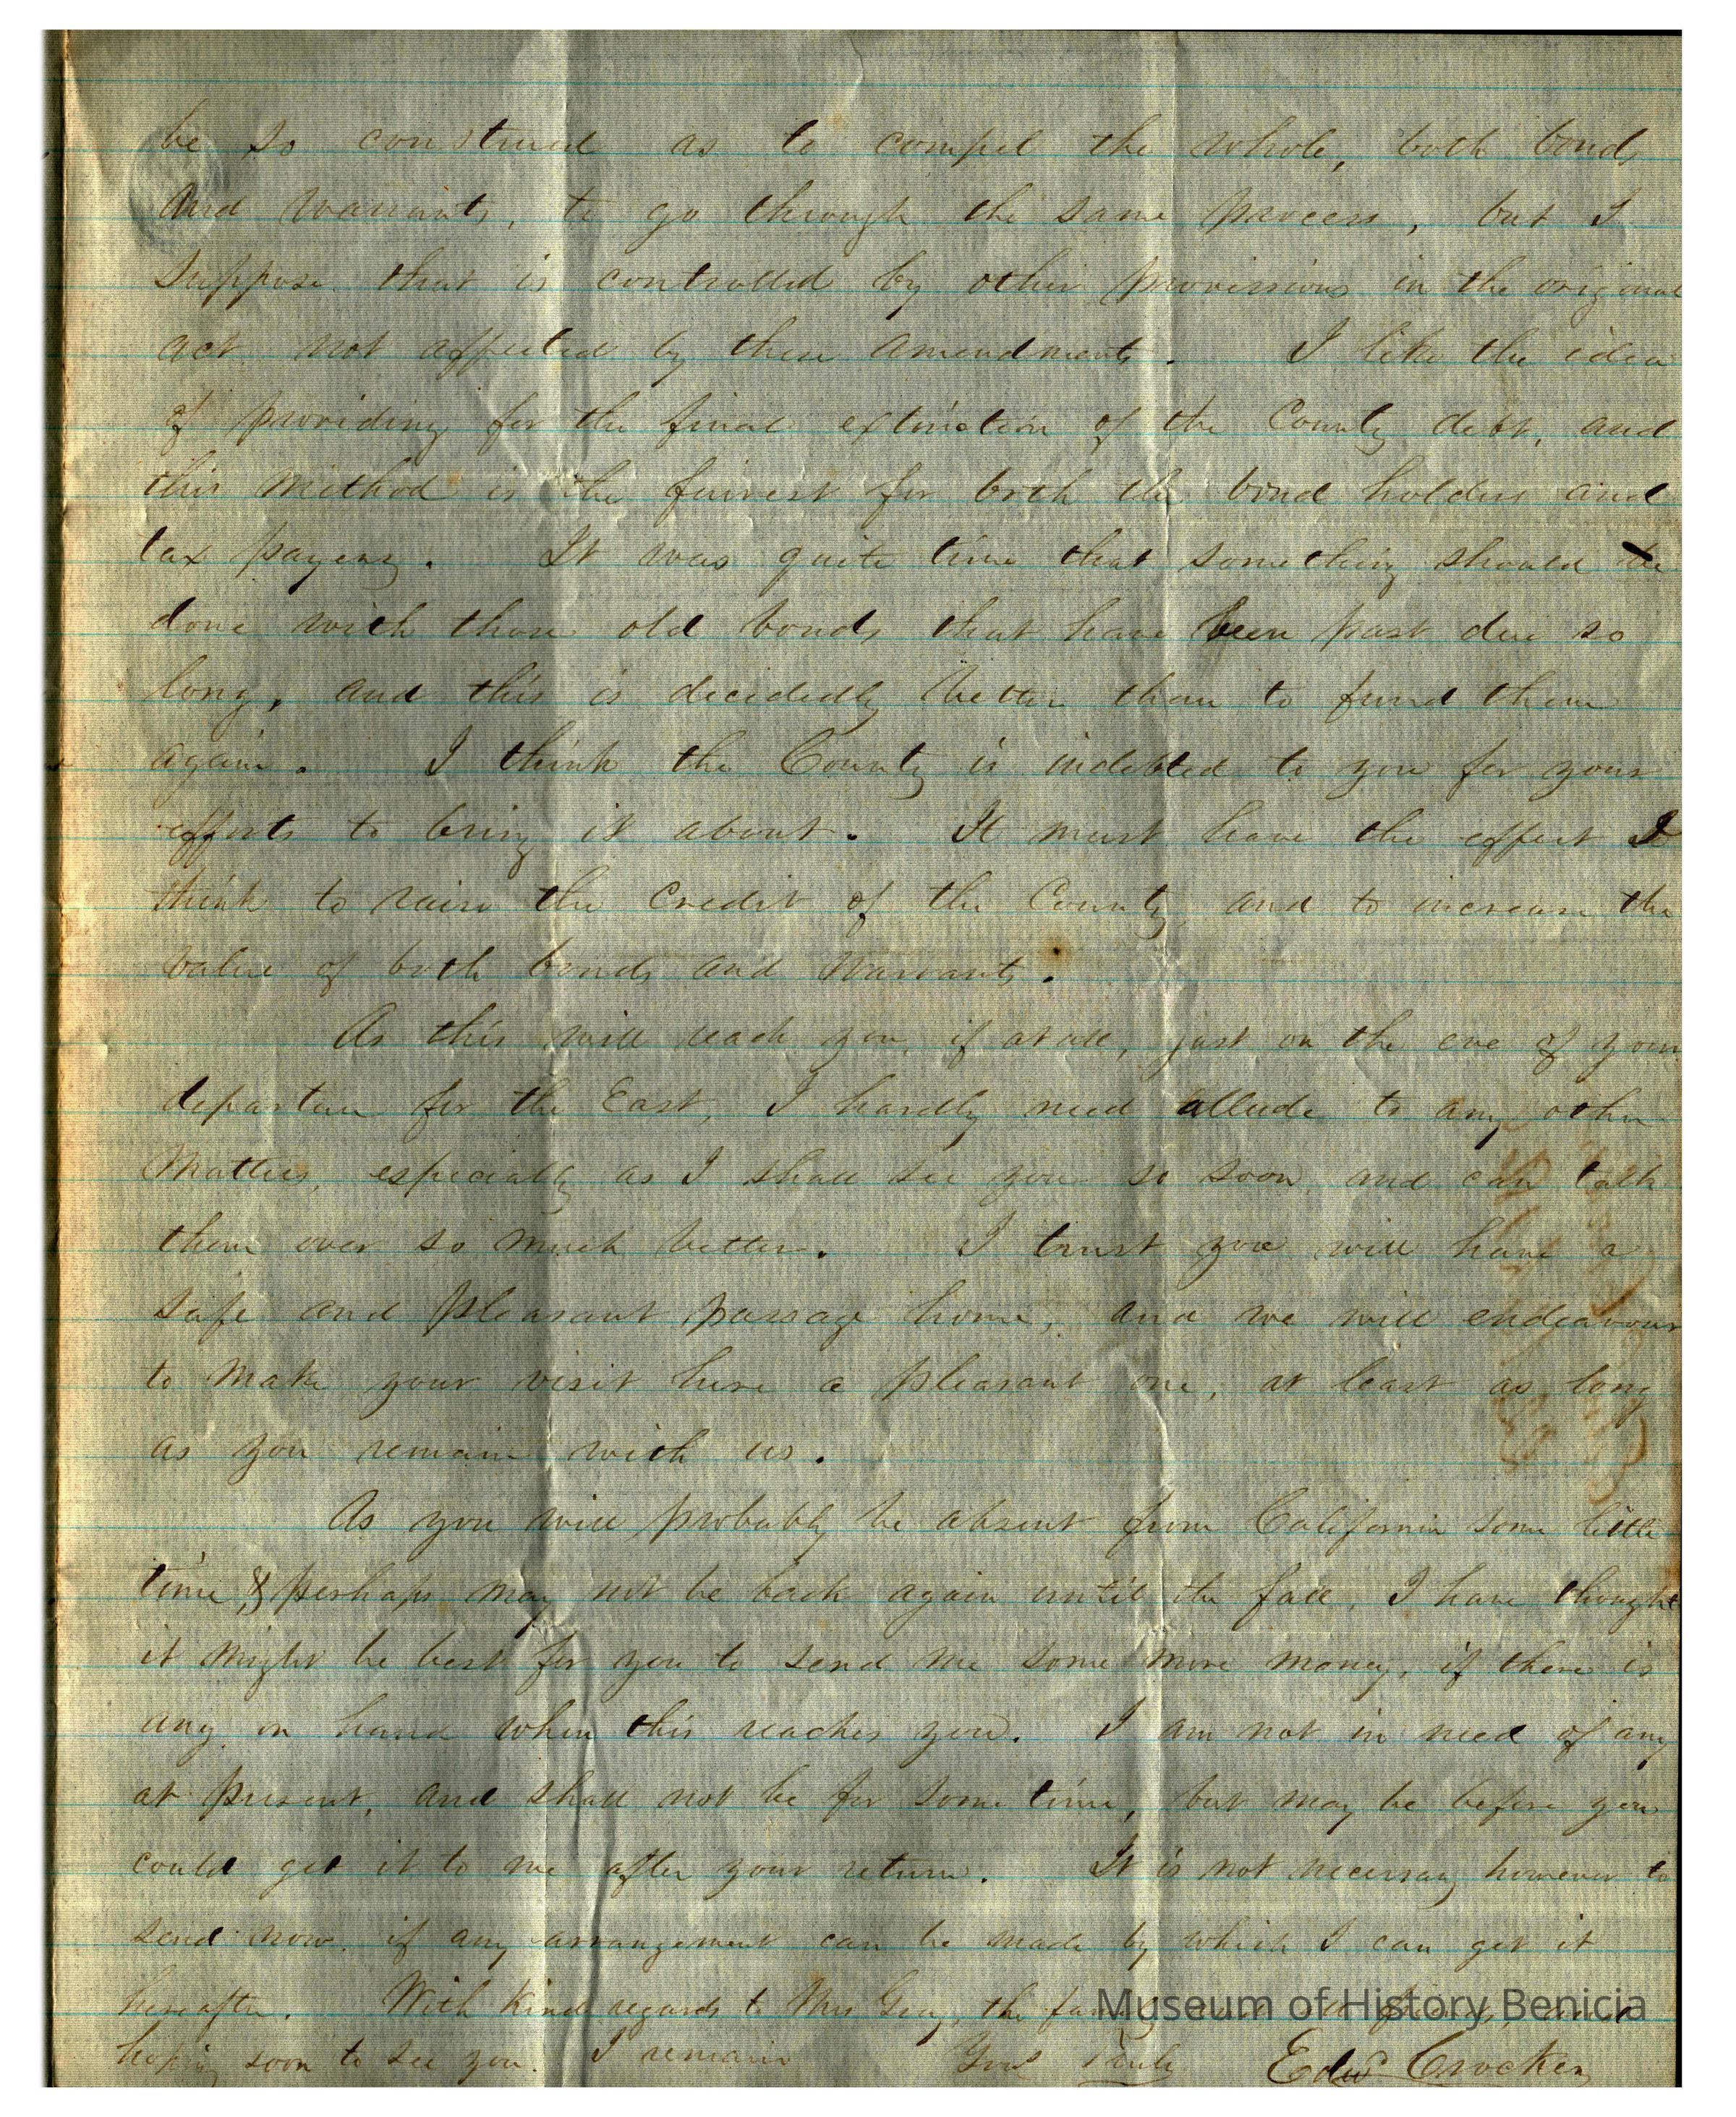 be so construed as to compel the whole, both bonds
and warrants, to go through the same process, but I
suppose that is controlled by other provisions in the original
act not affected by these amendments. I like the idea
of providing for the final extinction of the County debt, and
this method is the fairest for both the bond holders and
tax payers. It was quite time that something should be
done with those old bonds that have been past due so
long, and this is decidedly better than to fund them
again. I think the County is indebted to you for your
efforts to bring it about. It must have the effect I
think to raise the credit of the County and to increase the
value of both bonds and warrants.
As this will reach you, if at all, just on the eve of your
departure for the East, I hardly need allude to any other
matters, especially as I shall see you so soon, and can talk
them over so much better. I trust you will have a
safe and pleasant passage home, and we will endeavour
to make your visit here a pleasant one, at least as long
as you remain with us.
As you will probably be absent from California some little
time, & perhaps may not be back again until the fall, I have thought
it might be best for you to send me some more money, if there is
any on hand when this reaches you. I am not in need of any
at present, and shall not be for some time, but may be before you
could get it to me after your return. It is not necessary however to
send now, if any arrangement can be made by which I can get it
hereafter. With kind regards to Mrs Gray, the
Museum of History Benicia
hoping soon to see you. I remain Yours Truly Edwd Crocker